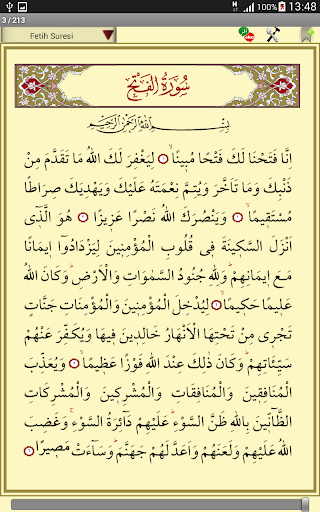 13:48
3 / 213
Fetih Suresi
سُورَةُ الْفَتْحِ
بِسْمِ اللّٰهِ الرَّحْمٰنِ الرَّحِيمِ
اِنَّا فَتَحْنَا لَكَ فَتْحًا مُبٖينًا ۝ لِيَغْفِرَ لَكَ اللّٰهُ مَا تَقَدَّمَ مِنْ
ذَنْبِكَ وَمَا تَاَخَّرَ وَيُتِمَّ نِعْمَتَهُ عَلَيْكَ وَيَهْدِيَكَ صِرَاطًا
مُسْتَقٖيمًا ۝ وَيَنْصُرَكَ اللّٰهُ نَصْرًا عَزٖيزًا ۝ هُوَ الَّذٖى
اَنْزَلَ السَّكٖينَةَ فٖى قُلُوبِ الْمُؤْمِنٖينَ لِيَزْدَادُوٓا اٖيمَانًا
مَعَ اٖيمَانِهِمْ وَلِلّٰهِ جُنُودُ السَّمٰوَاتِ وَالْاَرْضِ وَكَانَ اللّٰهُ
عَلٖيمًا حَكٖيمًا ۝ لِيُدْخِلَ الْمُؤْمِنٖينَ وَالْمُؤْمِنَاتِ جَنَّاتٍ
تَجْرٖى مِنْ تَحْتِهَا الْاَنْهَارُ خَالِدٖينَ فٖيهَا وَيُكَفِّرَ عَنْهُمْ
سَيِّپَاتِهِمْ وَكَانَ ذٰلِكَ عِنْدَ اللّٰهِ فَوْزًا عَظٖيمًا ۝ وَيُعَذِّبَ
الْمُنَافِقٖينَ وَالْمُنَافِقَاتِ وَالْمُشْرِكٖينَ وَالْمُشْرِكَاتِ
الظَّٓانّٖينَ بِاللّٰهِ ظَنَّ السَّوْءِ عَلَيْهِمْ دَٓائِرَةُ السَّوْءِ وَغَضِبَ
اللّٰهُ عَلَيْهِمْ وَلَعَنَهُمْ وَاَعَدَّ لَهُمْ جَهَنَّمَ وَسَٓاءَتْ مَصٖيرًا ۝